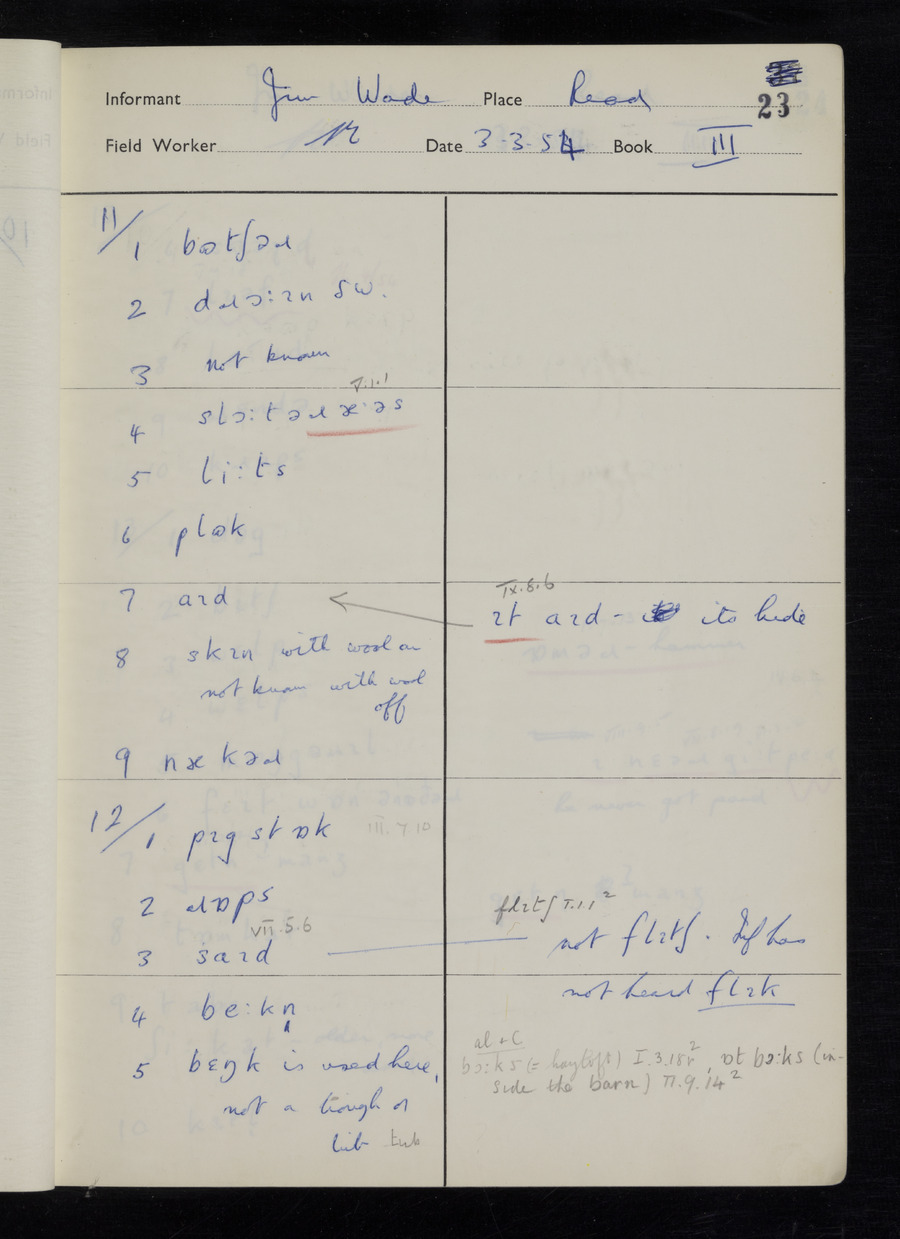 Informant Jim Wade Place Read 23
Field Worker Date 3-3-54 Book III
11/1 bʊtʃəɹ
2 dɹɔ:ɪn SW.
3 not known
V.1.1
4 slɔ:təɹ æ·əs
5 li:ts
6 plʊk
7 aɪd
IX.8.6
ɪt aɪd - its hide
8 skɪn with wool on
not known with wool
off
9 nækəɹ
12/1 pɪg stɒk III.7.10
2 ɹɒps
VII.5.6
3 saɪd
flɪtʃ V.1.1²
not flɪtʃ. Inf has
not heard flɪk
4 be:kn̩
5 beŋk is used here,
not a trough or
tub
al + C
bɔ:ks (= hayloft) I.3.18r², ɒt bɔ:ks (in-
side the barn) II.9.14²